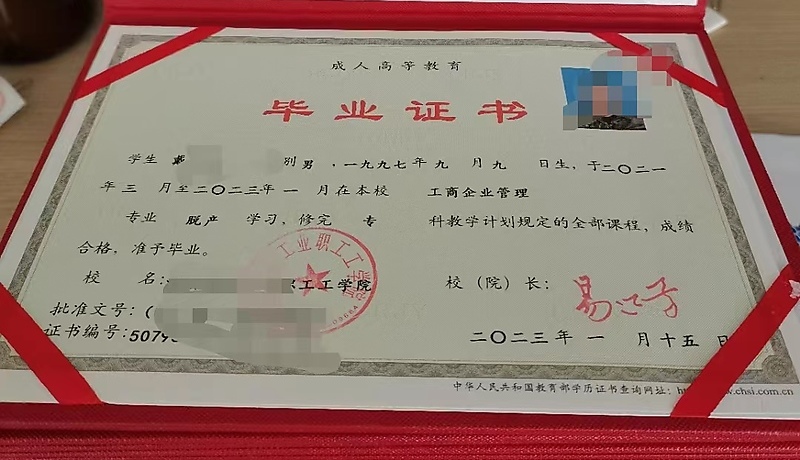 成人高等教育
毕业证书
学生 戴 别 男，一九九七年 九 月 九 日生，于二〇二一
年 三 月至二〇二三年 一 月在本校 工商企业管理
专业 脱产 学习，修完 专 科教学计划规定的全部课程，成绩
合格，准予毕业。
校 名： 工学院 校（院）长：
批准文号：(
证书编号：5079
二〇二三年 一 月十五 日
工业职工工学院
中华人民共和国教育部学历证书查询网址：ht chsi.com.cn